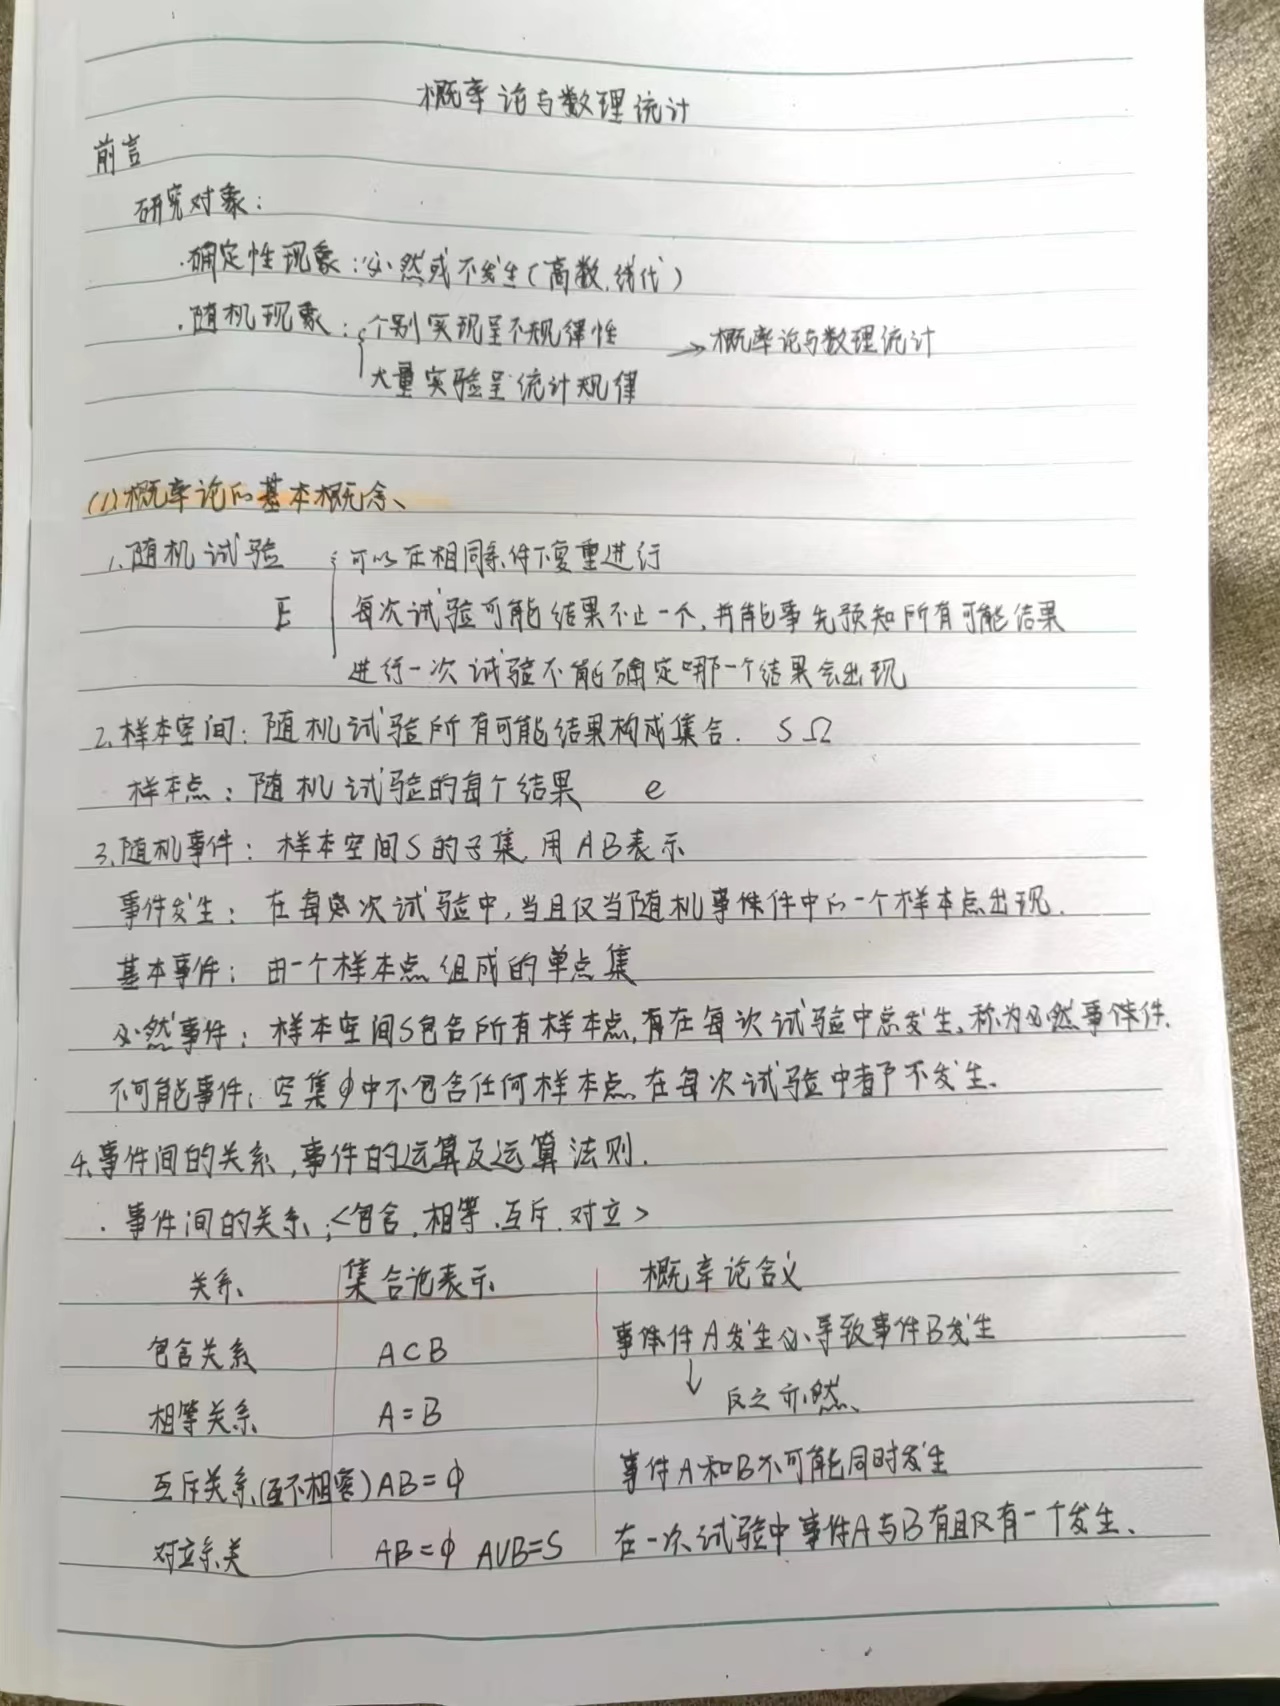 概率论与数理统计
前言
研究对象:
·确定性现象:必然或不发生(高数.线代)
·随机现象:个别实现呈不规律性 →概率论与数理统计
大量实验呈统计规律
(1)概率论的基本概念、
1.随机试验 可以在相同条件下重进行
E 每次试验可能结果不止一个,并能事先预知所有可能结果
进行一次试验不能确定哪一个结果会出现
2.样本空间:随机试验所有可能结果构成集合. S Ω
样本点:随机试验的每个结果 e
3.随机事件:样本空间S的子集,用AB表示
事件发生:在每次试验中,当且仅当随机事件中的一个样本点出现.
基本事件:由一个样本点组成的单点集
必然事件:样本空间S包含所有样本点,有在每次试验中总发生、称为必然事件.
不可能事件:空集φ中不包含任何样本点,在每次试验中都不发生、
4.事件间的关系,事件的运算及运算法则.
·事件间的关系:<包含,相等、互斥.对立>
关系 集合论表示 概率论含义
包含关系 A⊂B 事件A发生必导致事件B发生
相等关系 A=B ↓ 反之亦然、
互斥关系(互不相容) AB=φ 事件A和B不可能同时发生
对立系关 AB=φ A∪B=S 在一次试验中事件A与B有且仅有一个发生、